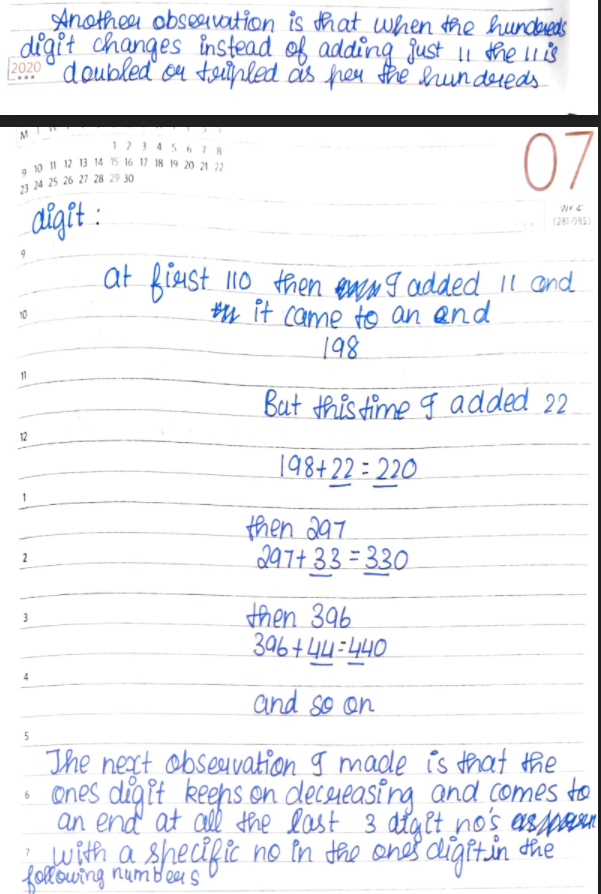 Another observation is that when the hundreds
digit changes instead of adding just 11 the 11 is
2020
doubled or tripled as per the hundreds
M
07
1 2 3 4 5 6 7 8
9 10 11 12 13 14 15 16 17 18 19 20 21 22
23 24 25 26 27 28 29 30
digit :
9
at first 110 then I added 11 and
10
it came to an end
198
11
But this time I added 22
12
198+22=220
1
then 297
2
297+33=330
3
then 396
396+44=440
4
and so on
5
The next observation I made is that the
6
ones digit keeps on decreasing and comes to
an end at all the last 3 digit no's
7
with a specific no in the ones digit in the
following numbers